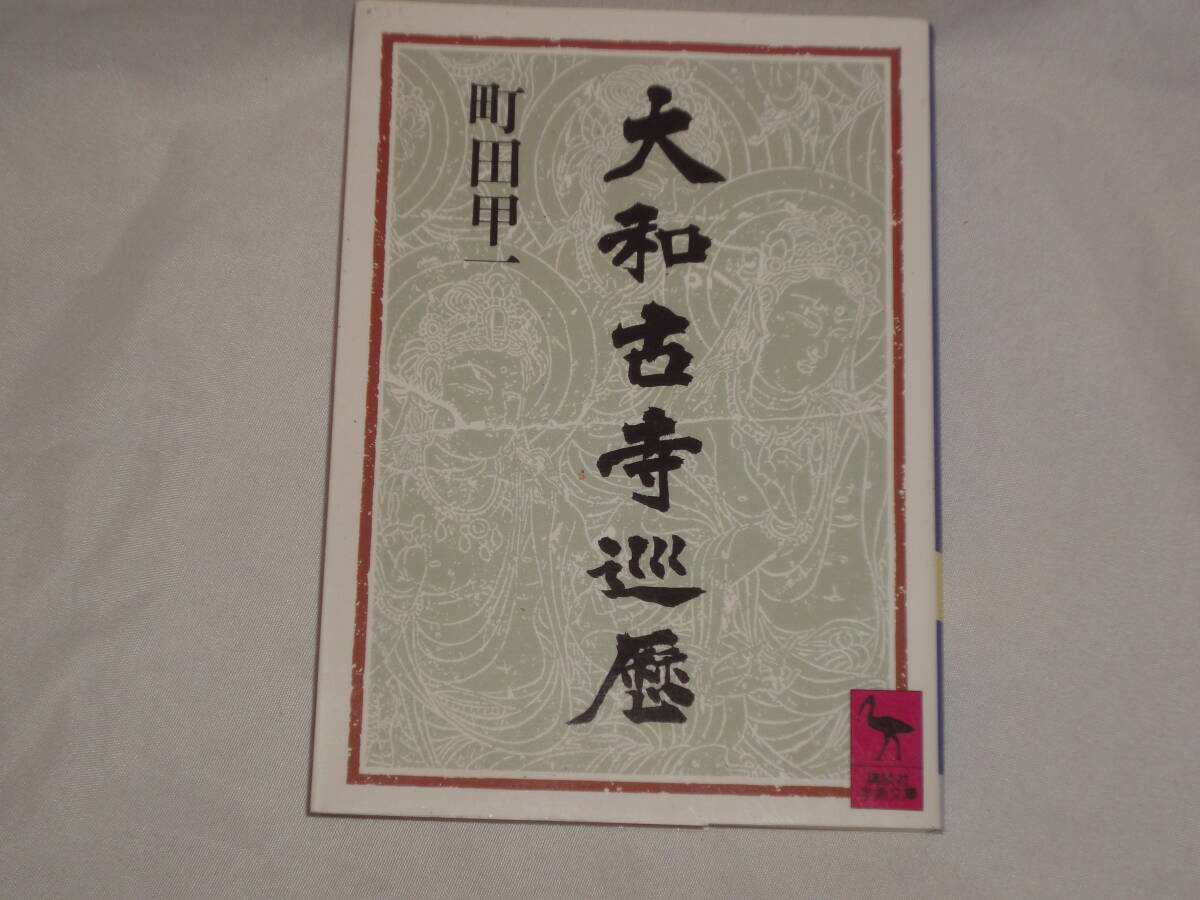 大和古寺巡歴
町田甲一
講談社
学術文庫